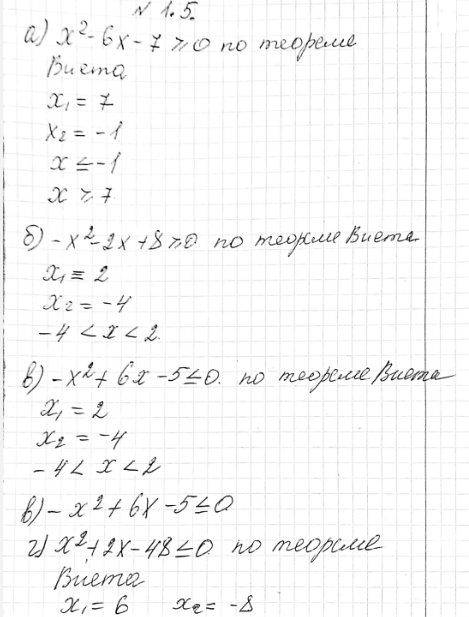 № 1.5.
а) x² - 6x - 7 ≥ 0 по теореме
Виета
x₁ = 7
x₂ = -1
x ≤ -1
x ≥ 7
б) -x² - 2x + 8 ≥ 0 по теореме Виета
x₁ = 2
x₂ = -4
-4 < x < 2.
в) -x² + 6x - 5 ≤ 0. по теореме Виета
x₁ = 2
x₂ = -4
-4 < x < 2
в) -x² + 6x - 5 ≤ 0
г) x² + 2x - 48 ≤ 0 по теореме
Виета
x₁ = 6 x₂ = -8